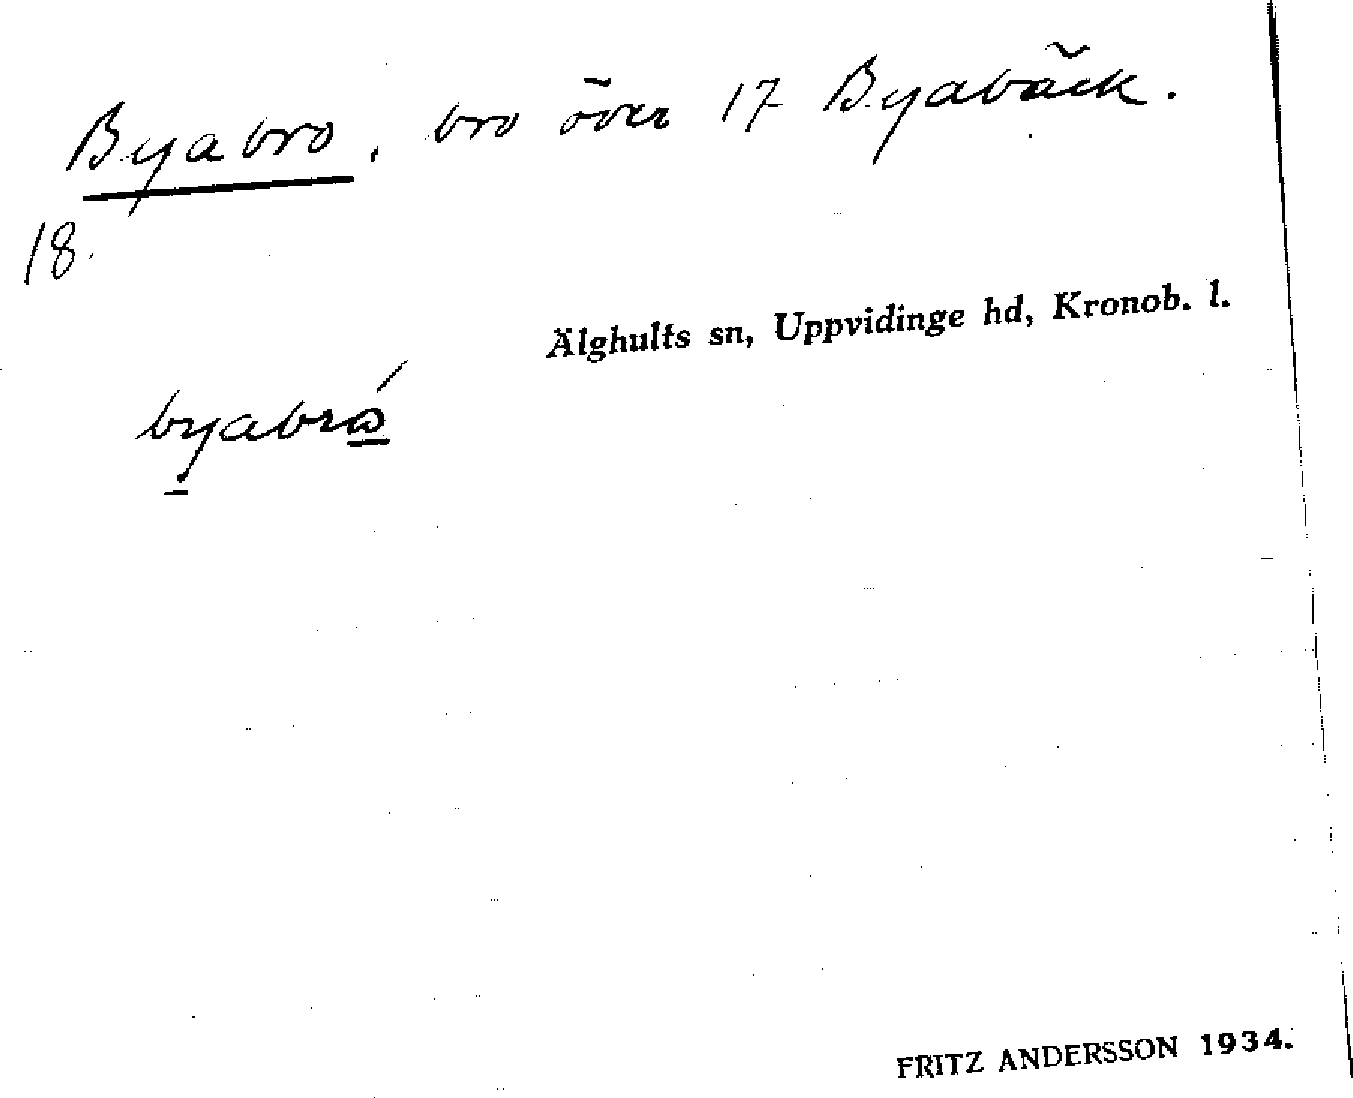 Byabro, bro över 17 Byabäck.
18.
Älghults sn, Uppvidinge hd, Kronob. l.
byabró
FRITZ ANDERSSON 1934.